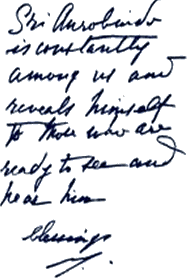 Sri Aurobindo
is constantly
among us and
reveals himself
to those who are
ready to see and
hear him
blessings